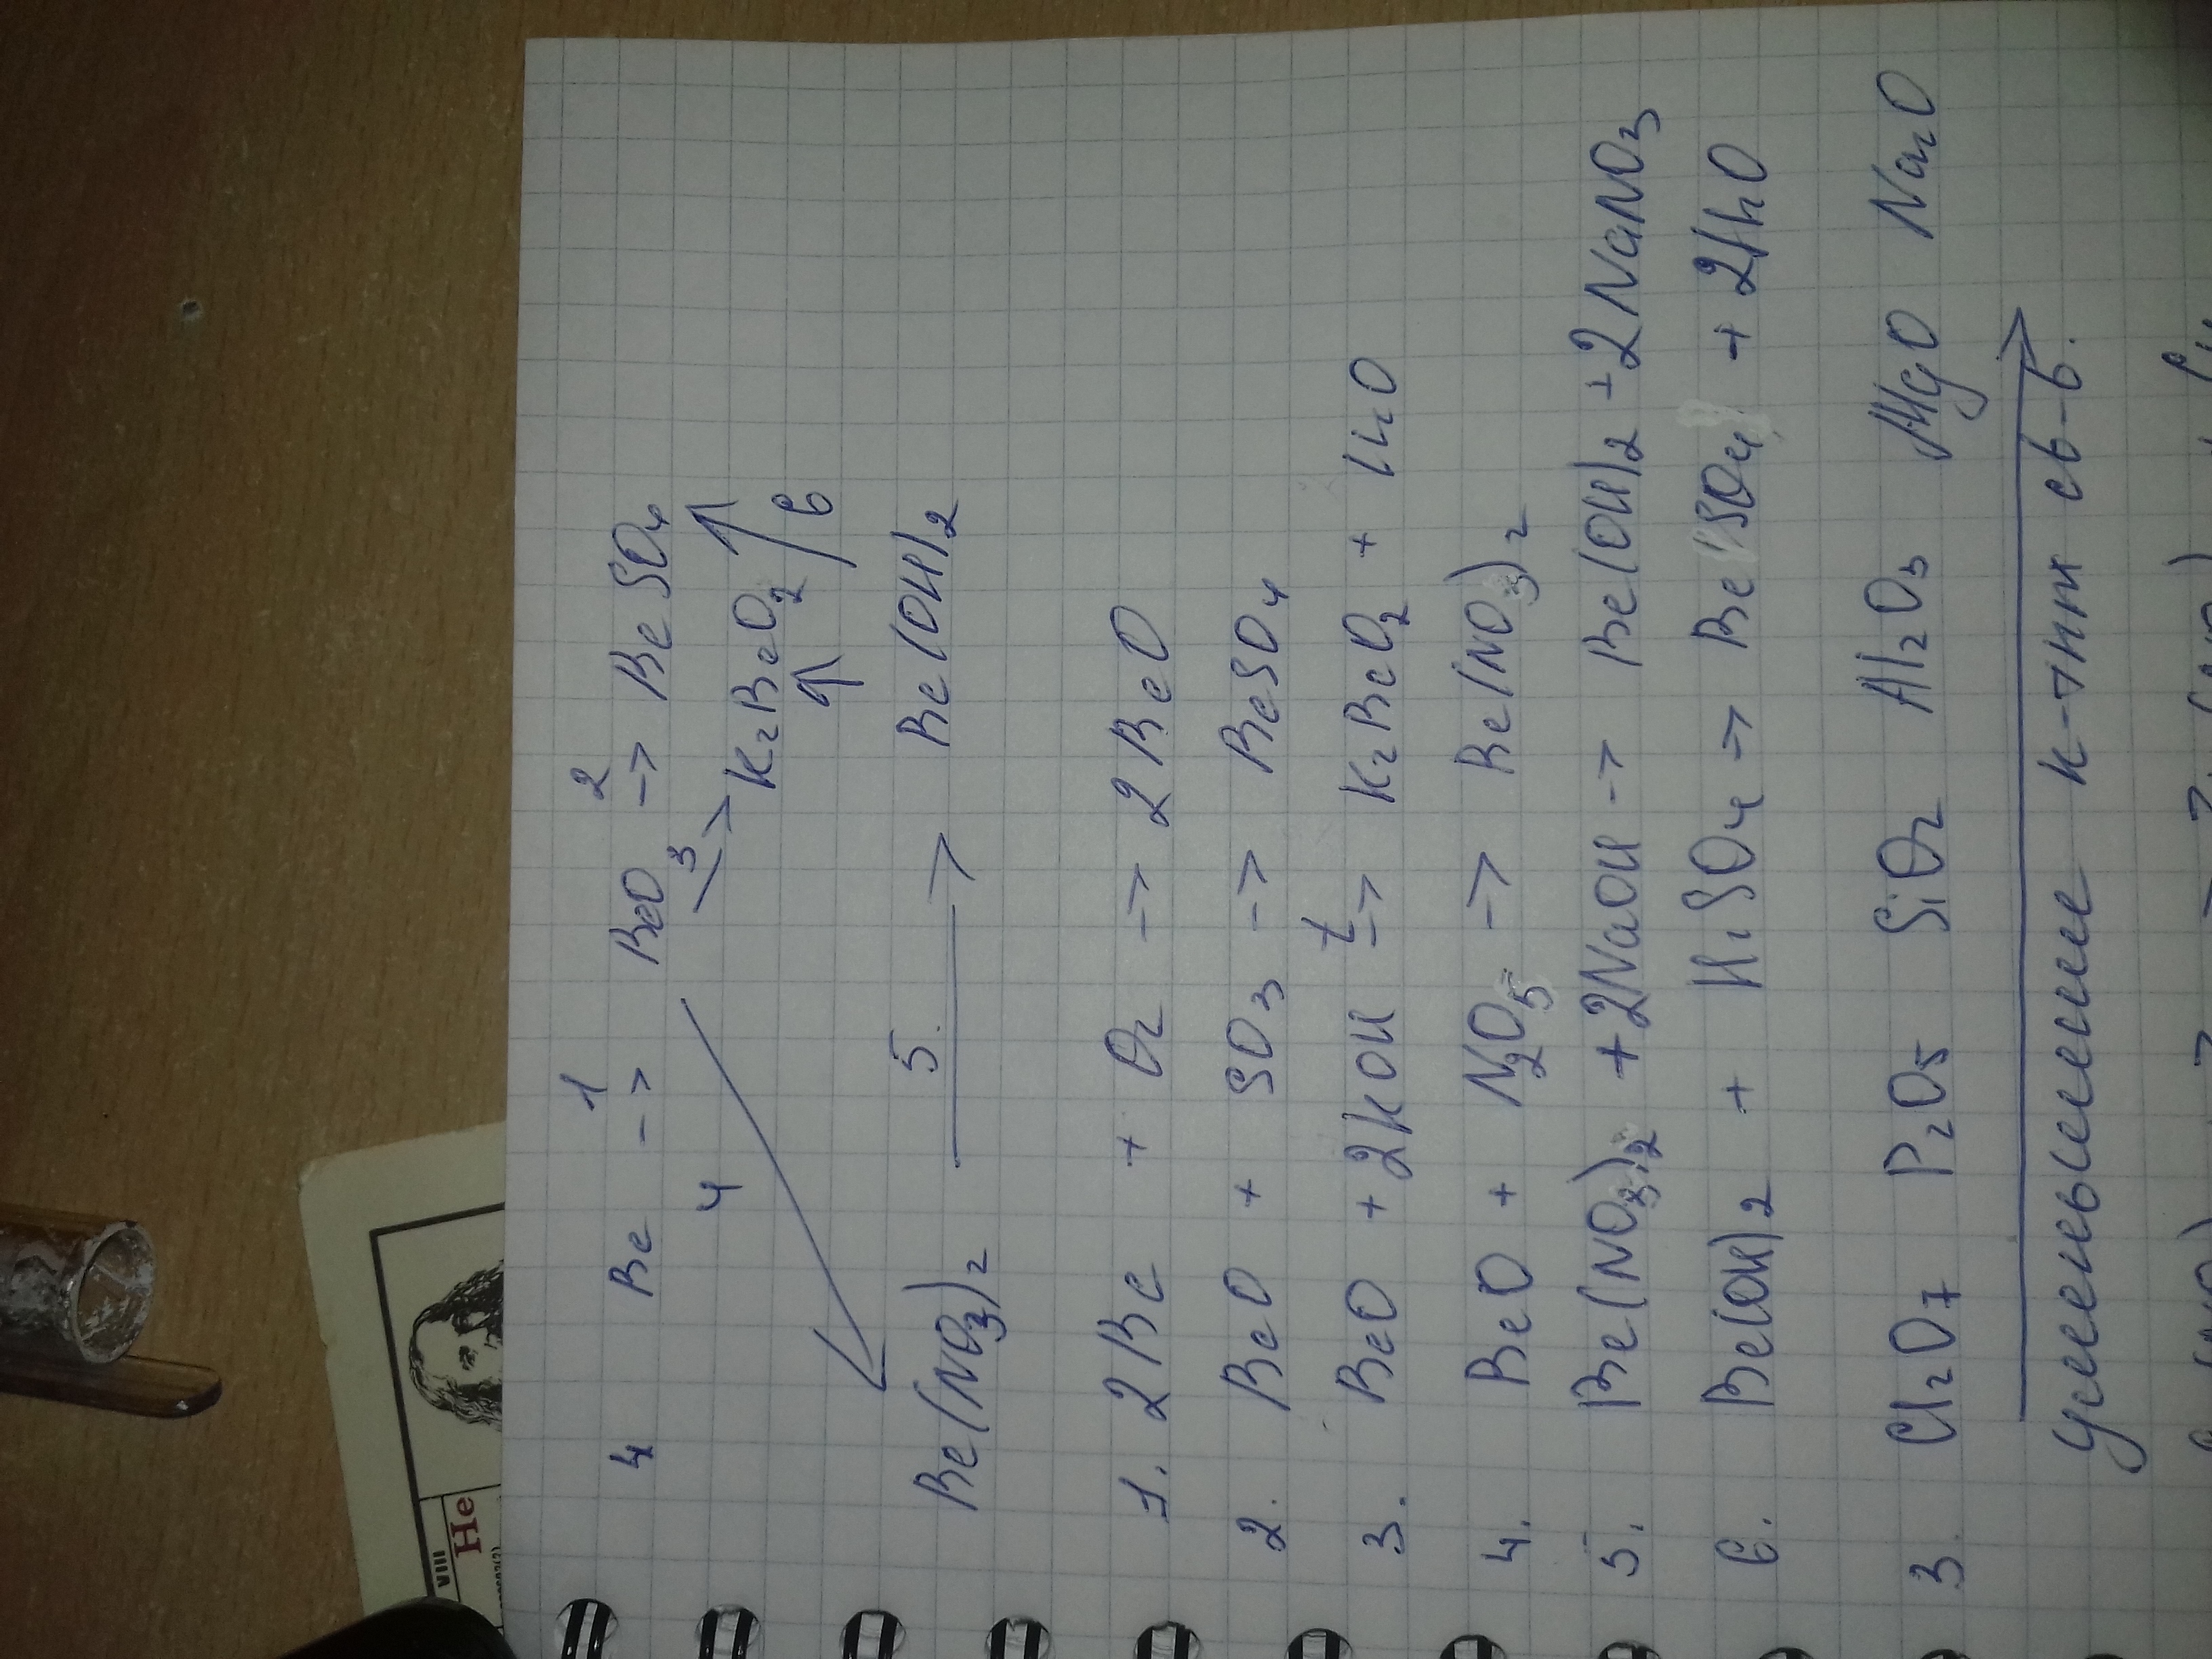 4 Be 1-> BeO 2-> BeSO4
4 3 -> K2BeO2
6
Be(NO3)2 5. -> Be(OH)2
1. 2Be + O2 -> 2BeO
2. BeO + SO3 -> BeSO4
3. BeO + 2KOH t-> K2BeO2 + H2O
4. BeO + N2O5 -> Be(NO3)2
5. Be(NO3)2 + 2NaOH -> Be(OH)2 + 2NaNO3
6. Be(OH)2 + H2SO4 -> BeSO4 + 2H2O
3. Cl2O7 P2O5 SiO2 Al2O3 MgO Na2O
уменьшение к-тнх св-в.
VIII
He